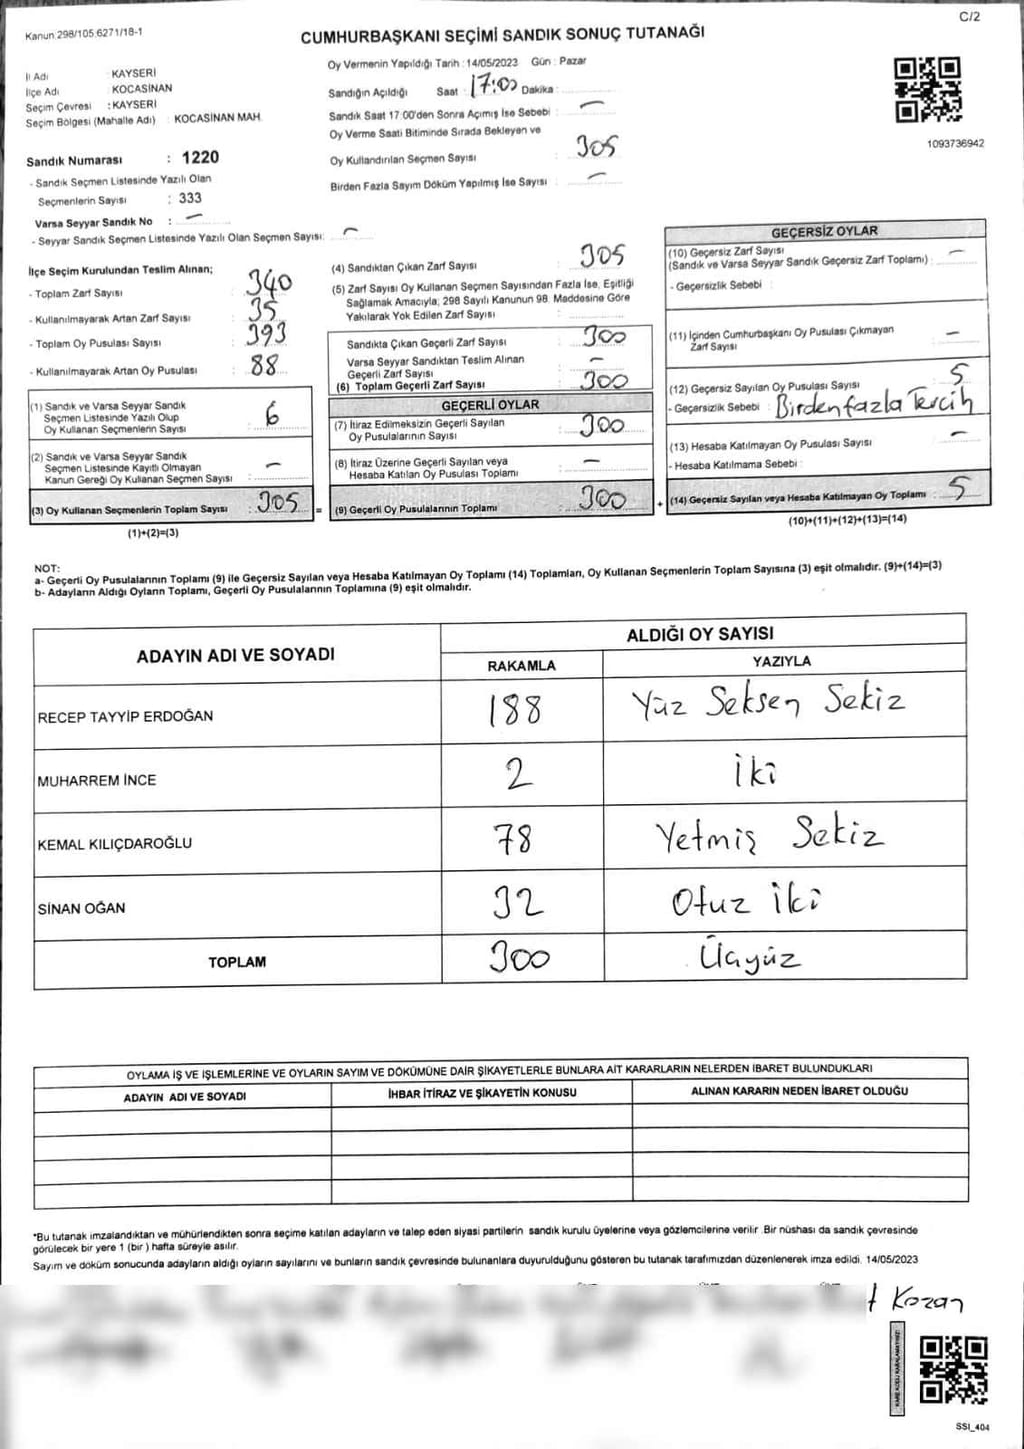 Kanun 298/105 6271/18-1
C/2
CUMHURBAŞKANI SEÇİMİ SANDIK SONUÇ TUTANAĞI
İl Adı : KAYSERİ
İlçe Adı : KOCASİNAN
Seçim Çevresi : KAYSERİ
Seçim Bölgesi (Mahalle Adı) : KOCASİNAN MAH.
Sandık Numarası : 1220
- Sandık Seçmen Listesinde Yazılı Olan
Seçmenlerin Sayısı : 333
Varsa Seyyar Sandık No : –
- Seyyar Sandık Seçmen Listesinde Yazılı Olan Seçmen Sayısı: –
Oy Vermenin Yapıldığı Tarih : 14/05/2023 Gün : Pazar
Sandığın Açıldığı Saat : 17:00 Dakika :
Sandık Saat 17:00'den Sonra Açımış İse Sebebi : –
Oy Verme Saati Bitiminde Sırada Bekleyen ve
Oy Kullandırılan Seçmen Sayısı : 305
Birden Fazla Sayım Döküm Yapılmış İse Sayısı : –
1093736942
İlçe Seçim Kurulundan Teslim Alınan;
- Toplam Zarf Sayısı : 340
- Kullanılmayarak Artan Zarf Sayısı : 35
- Toplam Oy Pusulası Sayısı : 393
- Kullanılmayarak Artan Oy Pusulası : 88
(1) Sandık ve Varsa Seyyar Sandık
Seçmen Listesinde Yazılı Olup
Oy Kullanan Seçmenlerin Sayısı : 6
(2) Sandık ve Varsa Seyyar Sandık
Seçmen Listesinde Kayıtlı Olmayan
Kanun Gereği Oy Kullanan Seçmen Sayısı : –
(3) Oy Kullanan Seçmenlerin Toplam Sayısı : 305 =
(1)+(2)=(3)
(4) Sandıktan Çıkan Zarf Sayısı : 305
(5) Zarf Sayısı Oy Kullanan Seçmen Sayısından Fazla İse, Eşitliği
Sağlamak Amacıyla; 298 Sayılı Kanunun 98. Maddesine Göre
Yakılarak Yok Edilen Zarf Sayısı :
Sandıkta Çıkan Geçerli Zarf Sayısı : 300
Varsa Seyyar Sandıktan Teslim Alınan
Geçerli Zarf Sayısı : –
(6) Toplam Geçerli Zarf Sayısı : 300
GEÇERLİ OYLAR
(7) İtiraz Edilmeksizin Geçerli Sayılan
Oy Pusulalarının Sayısı : 300
(8) İtiraz Üzerine Geçerli Sayılan veya
Hesaba Katılan Oy Pusulası Toplamı : –
(9) Geçerli Oy Pusulalarının Toplamı : 300 +
GEÇERSİZ OYLAR
(10) Geçersiz Zarf Sayısı
(Sandık ve Varsa Seyyar Sandık Geçersiz Zarf Toplamı) : –
- Geçersizlik Sebebi :
(11) İçinden Cumhurbaşkanı Oy Pusulası Çıkmayan
Zarf Sayısı : –
(12) Geçersiz Sayılan Oy Pusulası Sayısı : 5
- Geçersizlik Sebebi : Birden fazla Tercih
(13) Hesaba Katılmayan Oy Pusulası Sayısı : –
- Hesaba Katılmama Sebebi :
(14) Geçersiz Sayılan veya Hesaba Katılmayan Oy Toplamı : 5
(10)+(11)+(12)+(13)=(14)
NOT:
a- Geçerli Oy Pusulalarının Toplamı (9) ile Geçersiz Sayılan veya Hesaba Katılmayan Oy Toplamı (14) Toplamları, Oy Kullanan Seçmenlerin Toplam Sayısına (3) eşit olmalıdır. (9)+(14)=(3)
b- Adayların Aldığı Oyların Toplamı, Geçerli Oy Pusulalarının Toplamına (9) eşit olmalıdır.
ADAYIN ADI VE SOYADI
ALDIĞI OY SAYISI
RAKAMLA YAZIYLA
RECEP TAYYİP ERDOĞAN 188 Yüz Seksen Sekiz
MUHARREM İNCE 2 İki
KEMAL KILIÇDAROĞLU 78 Yetmiş Sekiz
SİNAN OĞAN 32 Otuz İki
TOPLAM 300 Üçyüz
OYLAMA İŞ VE İŞLEMLERİNE VE OYLARIN SAYIM VE DÖKÜMÜNE DAİR ŞİKAYETLERLE BUNLARA AİT KARARLARIN NELERDEN İBARET BULUNDUKLARI
ADAYIN ADI VE SOYADI İHBAR İTİRAZ VE ŞİKAYETİN KONUSU ALINAN KARARIN NEDEN İBARET OLDUĞU
*Bu tutanak imzalandıktan ve mühürlendikten sonra seçime katılan adayların ve talep eden siyasi partilerin sandık kurulu üyelerine veya gözlemcilerine verilir. Bir nüshası da sandık çevresinde
görülecek bir yere 1 (bir ) hafta süreyle asılır.
Sayım ve döküm sonucunda adayların aldığı oyların sayılarını ve bunların sandık çevresinde bulunanlara duyurulduğunu gösteren bu tutanak tarafımızdan düzenlenerek imza edildi. 14/05/2023
t Kozan
KARE KODU KARALAMAYINIZ!
SSI_404